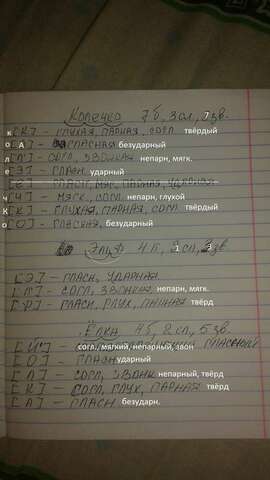 Колечко 7 б, 3 сл, 7 зв.
к [К] – глухая, парная, согл. твёрдый
о А – гласная безударный
л [Л] – согл, звонкая непарн, мягк.
е [Э] – гласн ударный
ч [Ч] – мягк, согл. непарн, глухой
К [К] – глухая, парная, согл твёрдый
о [О] – гласная, безударный
Эльф 4 б, 1 сл, 3 зв
[Э] – гласн, ударная
[Л] – согл, звонкая непарн, мягк
[Ф] – гласн, глух, парная твёрд
Ёлка 4 б, 2 сл, 5 зв.
[Й'] – согл., мягкий, непарный, звон гласный
[О] – гласн ударный
[Л] – согл, звонк непарный, твёрд
[К] – согл, глух, парная твёрд
[А] – гласн безударн.